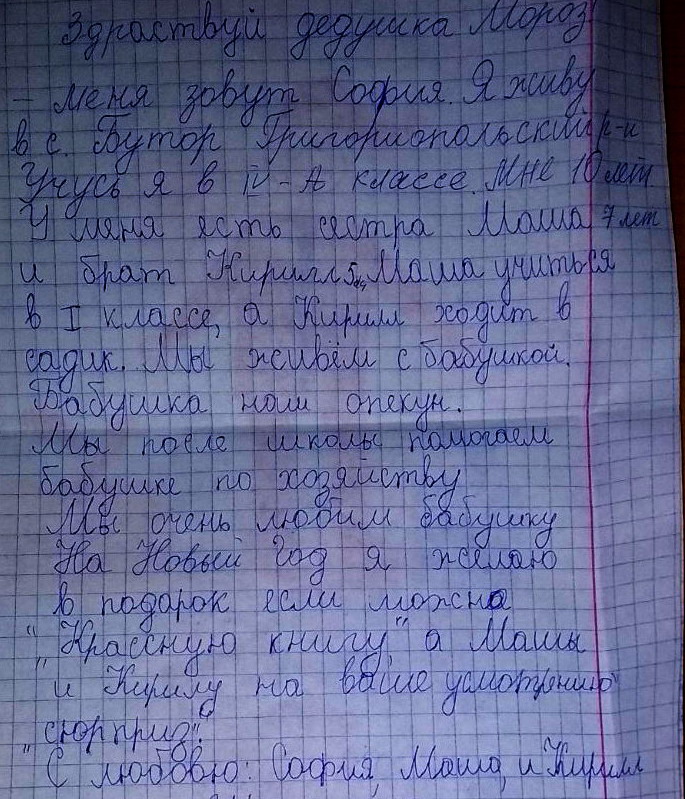 Здраствуй дедушка Мороз
- меня зовут София. Я живу
в с. Бутор Григориопольский р-н
Учусь я в IV-А классе. Мне 10 лет
У меня есть сестра Маша 7 лет
и брат Кирилл 5 Маша учиться
в I классе, а Кирилл ходит в
садик. Мы живём с бабушкой.
Бабушка наш опекун.
Мы после школы помогаем
бабушке по хозяйству
Мы очень любим бабушку
На Новый Год я желаю
в подарок если можно
„Крассную книгу" а Машы
и Кирилу на ваше усмотрению
„сюрприз".
С любовю: София, Маша, и Кирилл